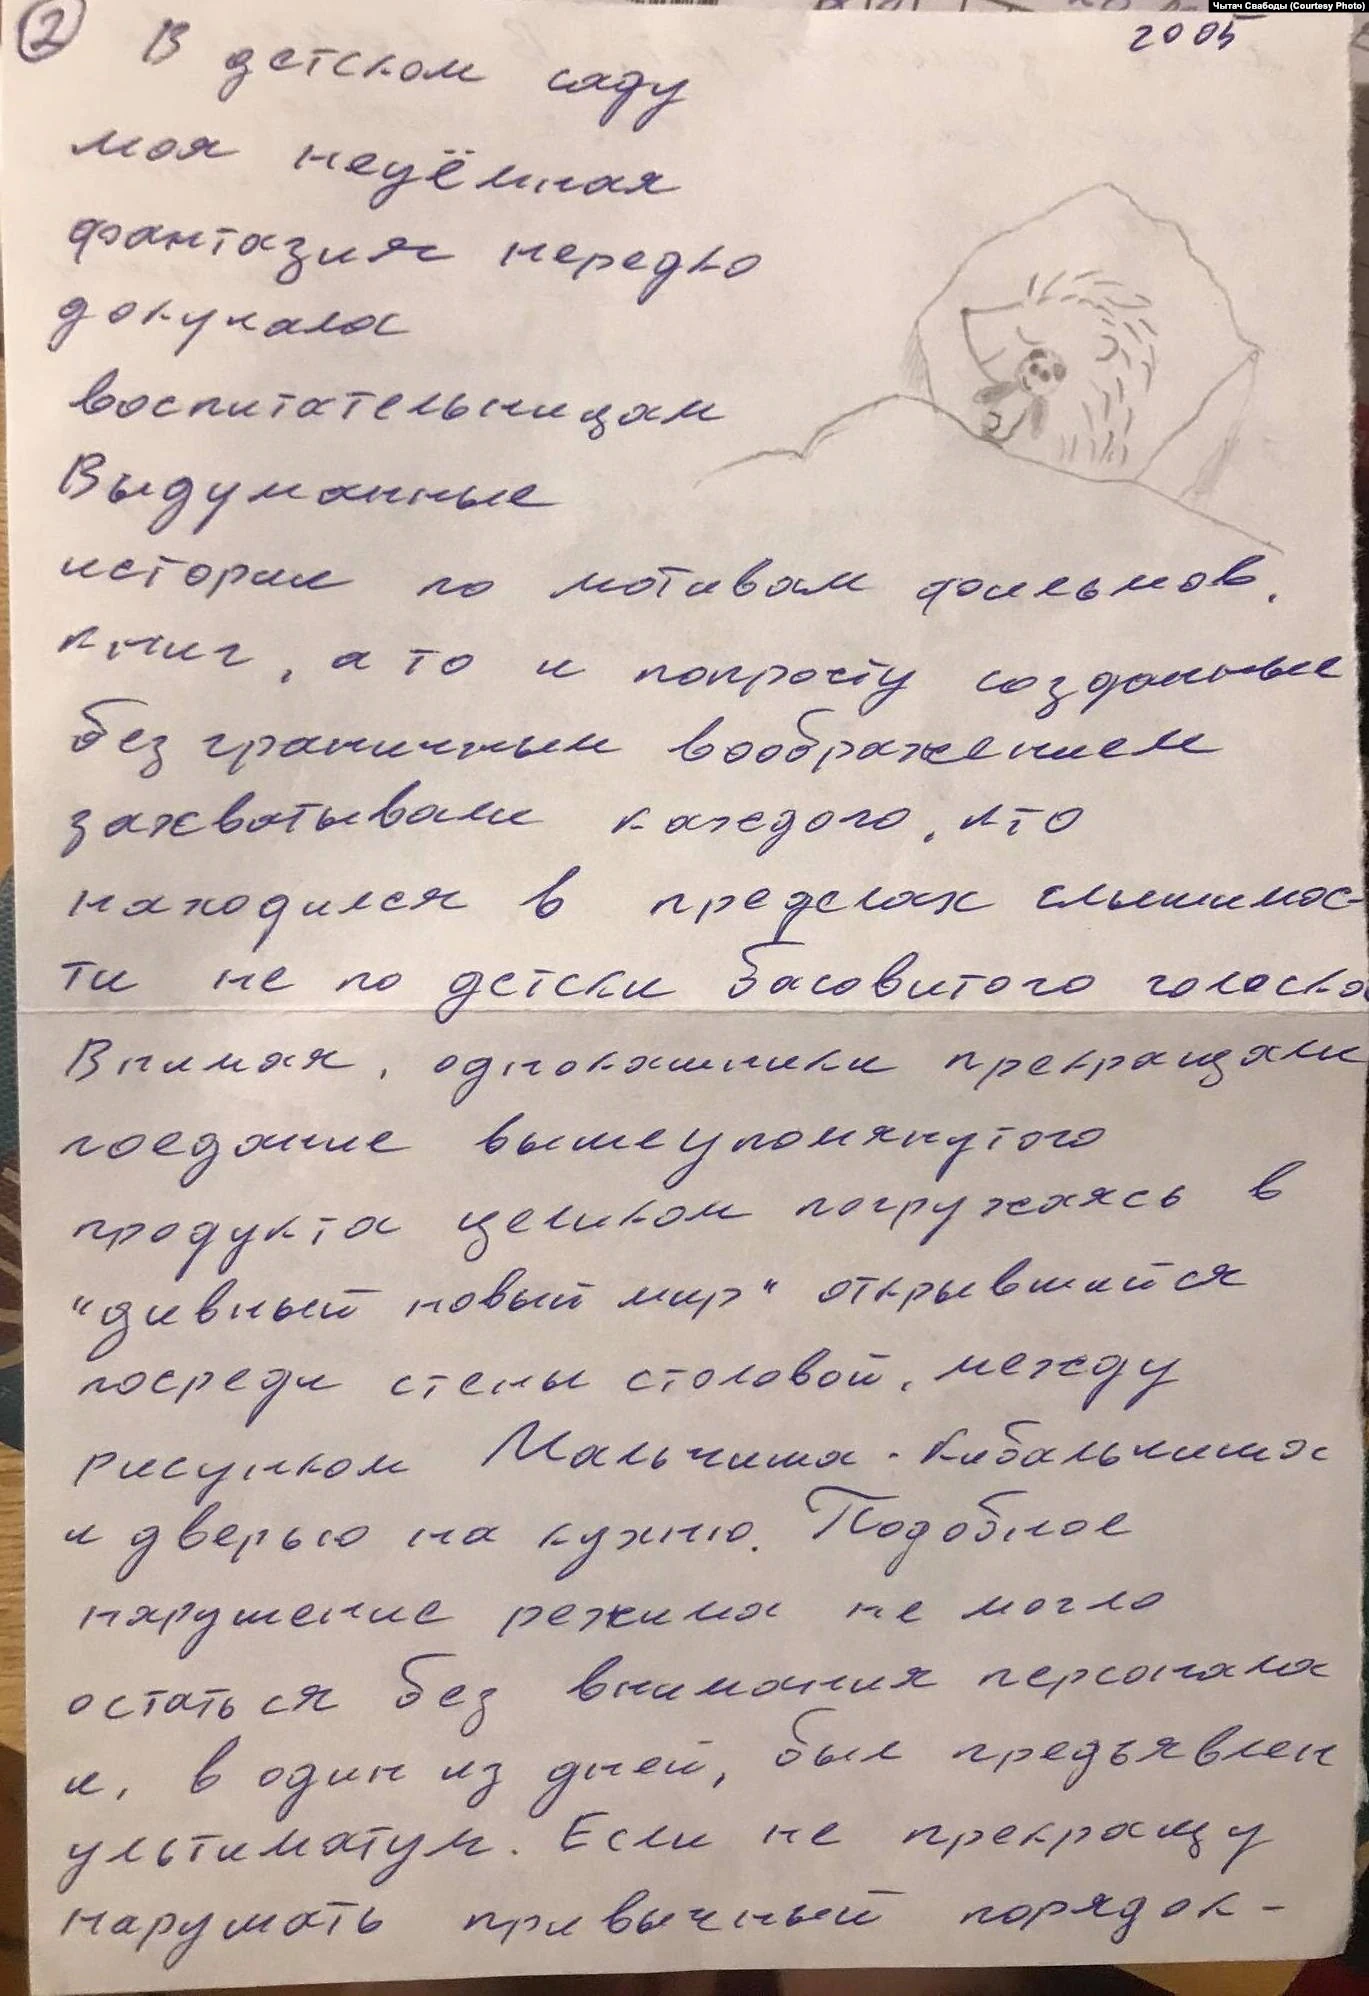 Чытач Свабоды (Courtesy Photo)
2005
2 В детском саду
моя неуёмная
фантазия нередко
докучала
воспитательницам
Выдуманные
истории по мотивам фильмов,
книг, а то и попросту созданные
безграничным воображением
захватывали каждого, кто
находился в пределах слышимос-
ти не по детски басовитого голоска
Внимая, однокашники прекращали
поедание вышеупомянутого
продукта целиком погружаясь в
"дивный новый мир" открывшийся
посреди стены столовой, между
рисунком Мальчиша-Кибальчиша
и дверью на кухню. Подобное
нарушение режима не могло
остаться без внимания персонала
и, в один из дней, был предъявлен
ультиматум. Если не прекращу
нарушать привычный порядок -